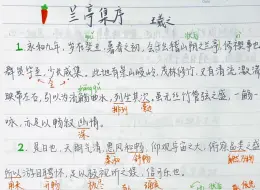 兰亭集序
王羲之
1. 永和九年，岁在癸丑，暮春之初，会于会稽山阴之兰亭，修禊事也
群贤毕至，少长咸集。此地有崇山峻岭，茂林修竹，又有清流激湍
映带左右，引以为流觞曲水，列坐其次。虽无丝竹管弦之盛，一觞一
咏，亦足以畅叙幽情。
2. 是日也，天朗气清，惠风和畅，仰观宇宙之大，俯察品类之盛
所以游目骋怀，足以极视听之娱，信可乐也。